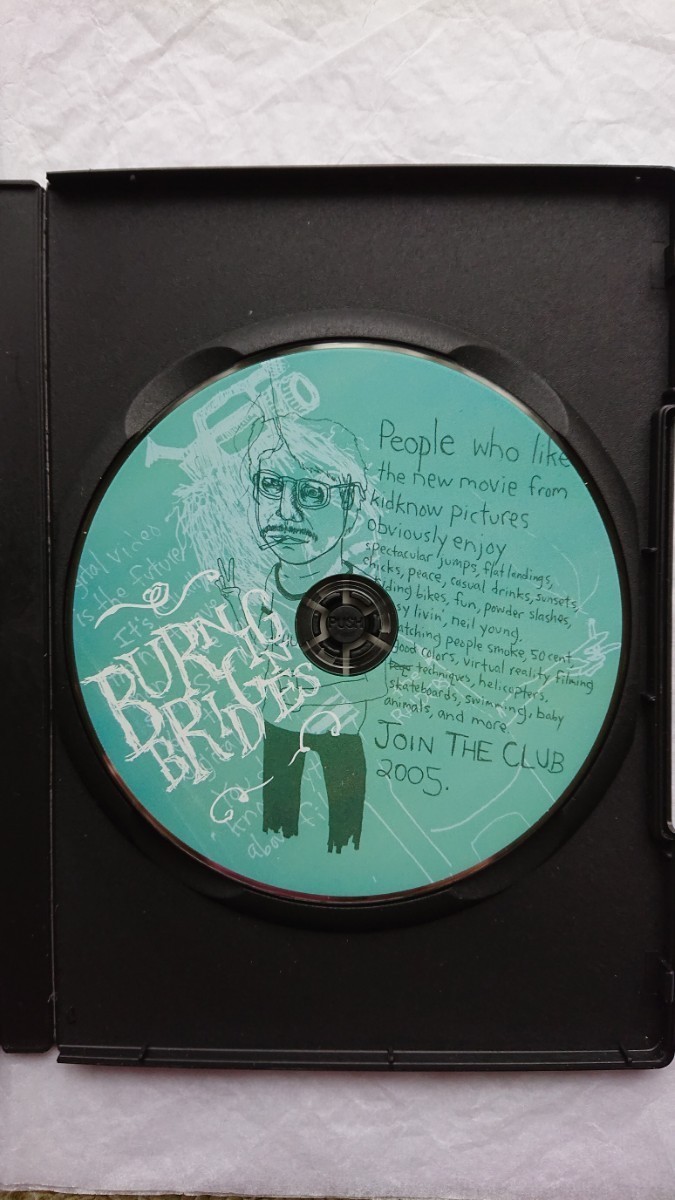 People who like
the new movie from
kidknow pictures
obviously enjoy
spectacular jumps, flat lendings,
chicks, peace, casual drinks, sunsets,
bikes, fun, powder slashes,
livin', neil young.
people smoke, 50 cent
good colors, virtual reality filming
techniques, helicopters,
skateboards, swimming, baby
animals, and more.
JOIN THE CLUB
2005.
is the future
It's
BURNING
BRIDGES
PUSH